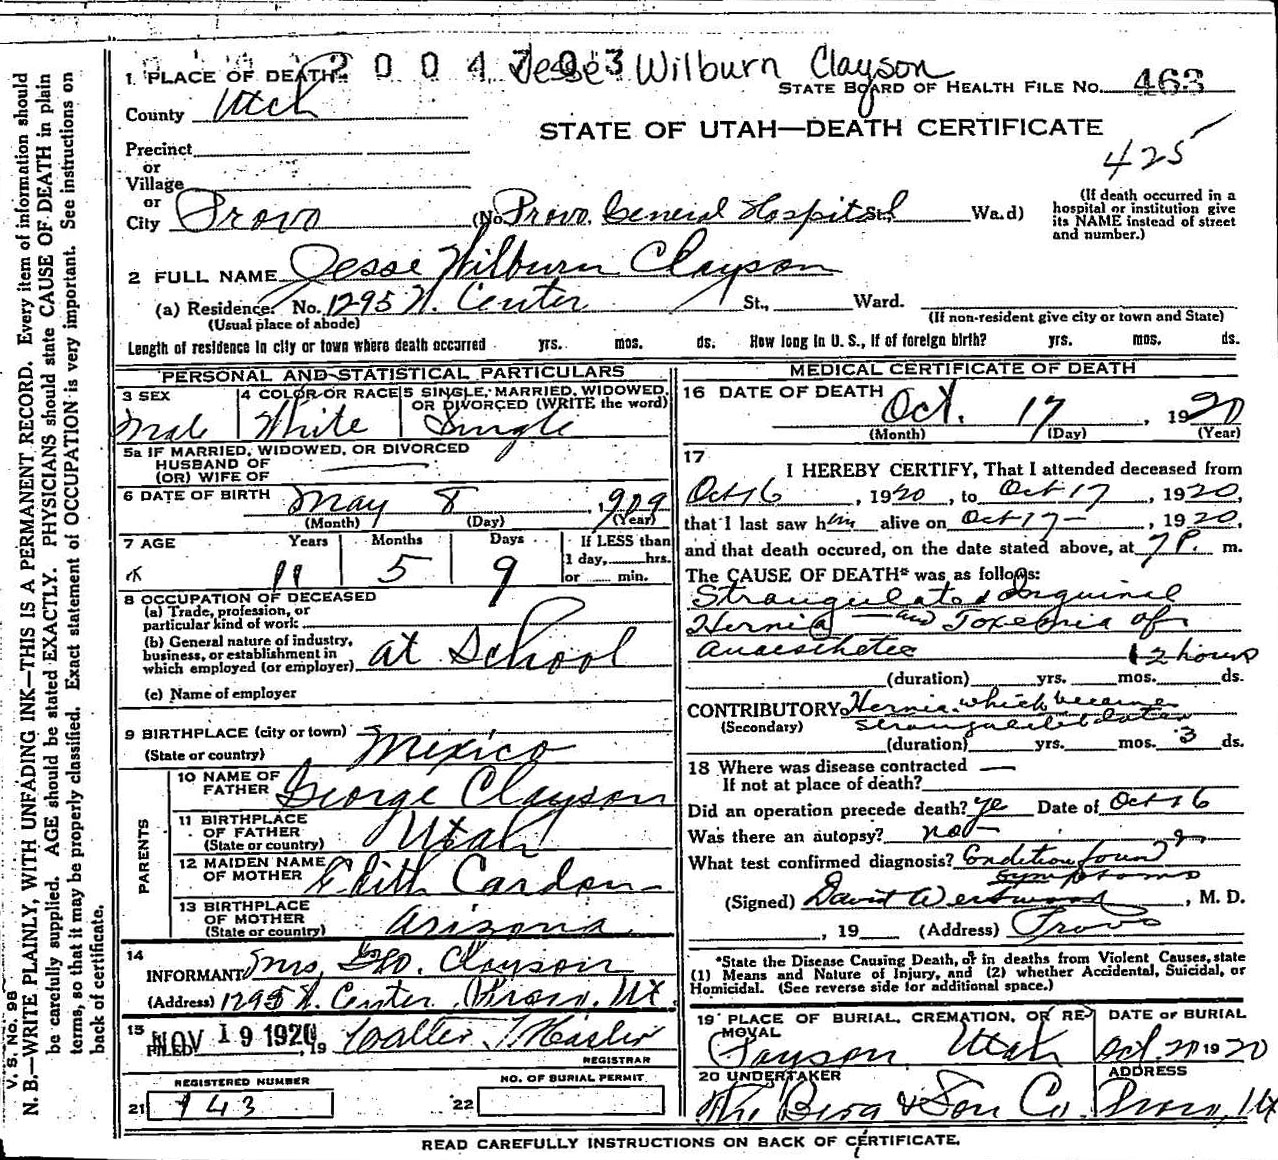 2004703 Jesse Wilburn Clayson
1 PLACE OF DEATH
STATE BOARD OF HEALTH FILE No. 463
County Utah
STATE OF UTAH—DEATH CERTIFICATE
425
Precinct
or
Village
or
City Provo (No. Provo General Hospital St. Wa.d)
(If death occurred in a hospital or institution give its NAME instead of street and number.)
2 FULL NAME Jesse Wilburn Clayson
(a) Residence. No. 1295 W. Center St., Ward.
(Usual place of abode) (If non-resident give city or town and State)
Length of residence in city or town where death occurred yrs. mos. ds. How long in U. S., if of foreign birth? yrs. mos. ds.
PERSONAL AND STATISTICAL PARTICULARS
3 SEX 4 COLOR OR RACE 5 SINGLE, MARRIED, WIDOWED, OR DIVORCED (WRITE the word)
Male White Single
5a IF MARRIED, WIDOWED, OR DIVORCED
HUSBAND OF
(OR) WIFE OF
6 DATE OF BIRTH May 8, 1909
(Month) (Day) (Year)
7 AGE Years Months Days If LESS than
1 day, hrs.
or min.
11 5 9
8 OCCUPATION OF DECEASED
(a) Trade, profession, or
particular kind of work
(b) General nature of industry,
business, or establishment in
which employed (or employer) at School
(c) Name of employer
9 BIRTHPLACE (city or town)
(State or country) Mexico
PARENTS
10 NAME OF
FATHER George Clayson
11 BIRTHPLACE
OF FATHER
(State or country) Utah
12 MAIDEN NAME
OF MOTHER Edith Cardon
13 BIRTHPLACE
OF MOTHER
(State or country) Arizona
14
INFORMANT Mrs. Geo. Clayson
(Address) 1295 W. Center Provo, Ut.
15
FILED NOV 19 1920, 19 Walter T Hasler
REGISTRAR
REGISTERED NUMBER NO. OF BURIAL PERMIT
21 743 22
MEDICAL CERTIFICATE OF DEATH
16 DATE OF DEATH Oct. 17, 1920
(Month) (Day) (Year)
17
I HEREBY CERTIFY, That I attended deceased from
Oct 16, 1920, to Oct 17, 1920,
that I last saw him alive on Oct-17-, 1920,
and that death occured, on the date stated above, at 7 P. m.
The CAUSE OF DEATH* was as follows:
Strangulated Inguinal
Hernia — and Toxemia of
anaesthetic 12 hours
(duration) yrs. mos. ds.
CONTRIBUTORY Hernia which became
(Secondary)
(duration) yrs. mos. 3 ds.
18 Where was disease contracted —
If not at place of death?
Did an operation precede death? yes Date of Oct 16
Was there an autopsy? no -
What test confirmed diagnosis? Condition found &
symptoms
(Signed) David Westwood, M. D.
, 19 (Address) Provo
*State the Disease Causing Death, or in deaths from Violent Causes, state
(1) Means and Nature of Injury, and (2) whether Accidental, Suicidal, or
Homicidal. (See reverse side for additional space.)
19 PLACE OF BURIAL, CREMATION, OR RE- DATE OF BURIAL
MOVAL Payson, Utah Oct. 20 1920
20 UNDERTAKER ADDRESS
The Berg & Son Co. Provo, Ut
READ CAREFULLY INSTRUCTIONS ON BACK OF CERTIFICATE.
V. S. NO. 98
N. B.—WRITE PLAINLY, WITH UNFADING INK—THIS IS A PERMANENT RECORD. Every item of information should
be carefully supplied. AGE should be stated EXACTLY. PHYSICIANS should state CAUSE OF DEATH in plain
terms, so that it may be properly classified. Exact statement of OCCUPATION is very important. See instructions on
back of certificate.